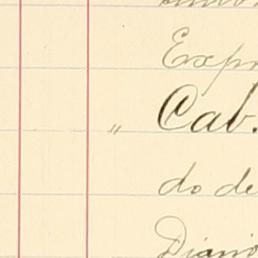 Expr
" Cab.
do de
Diario